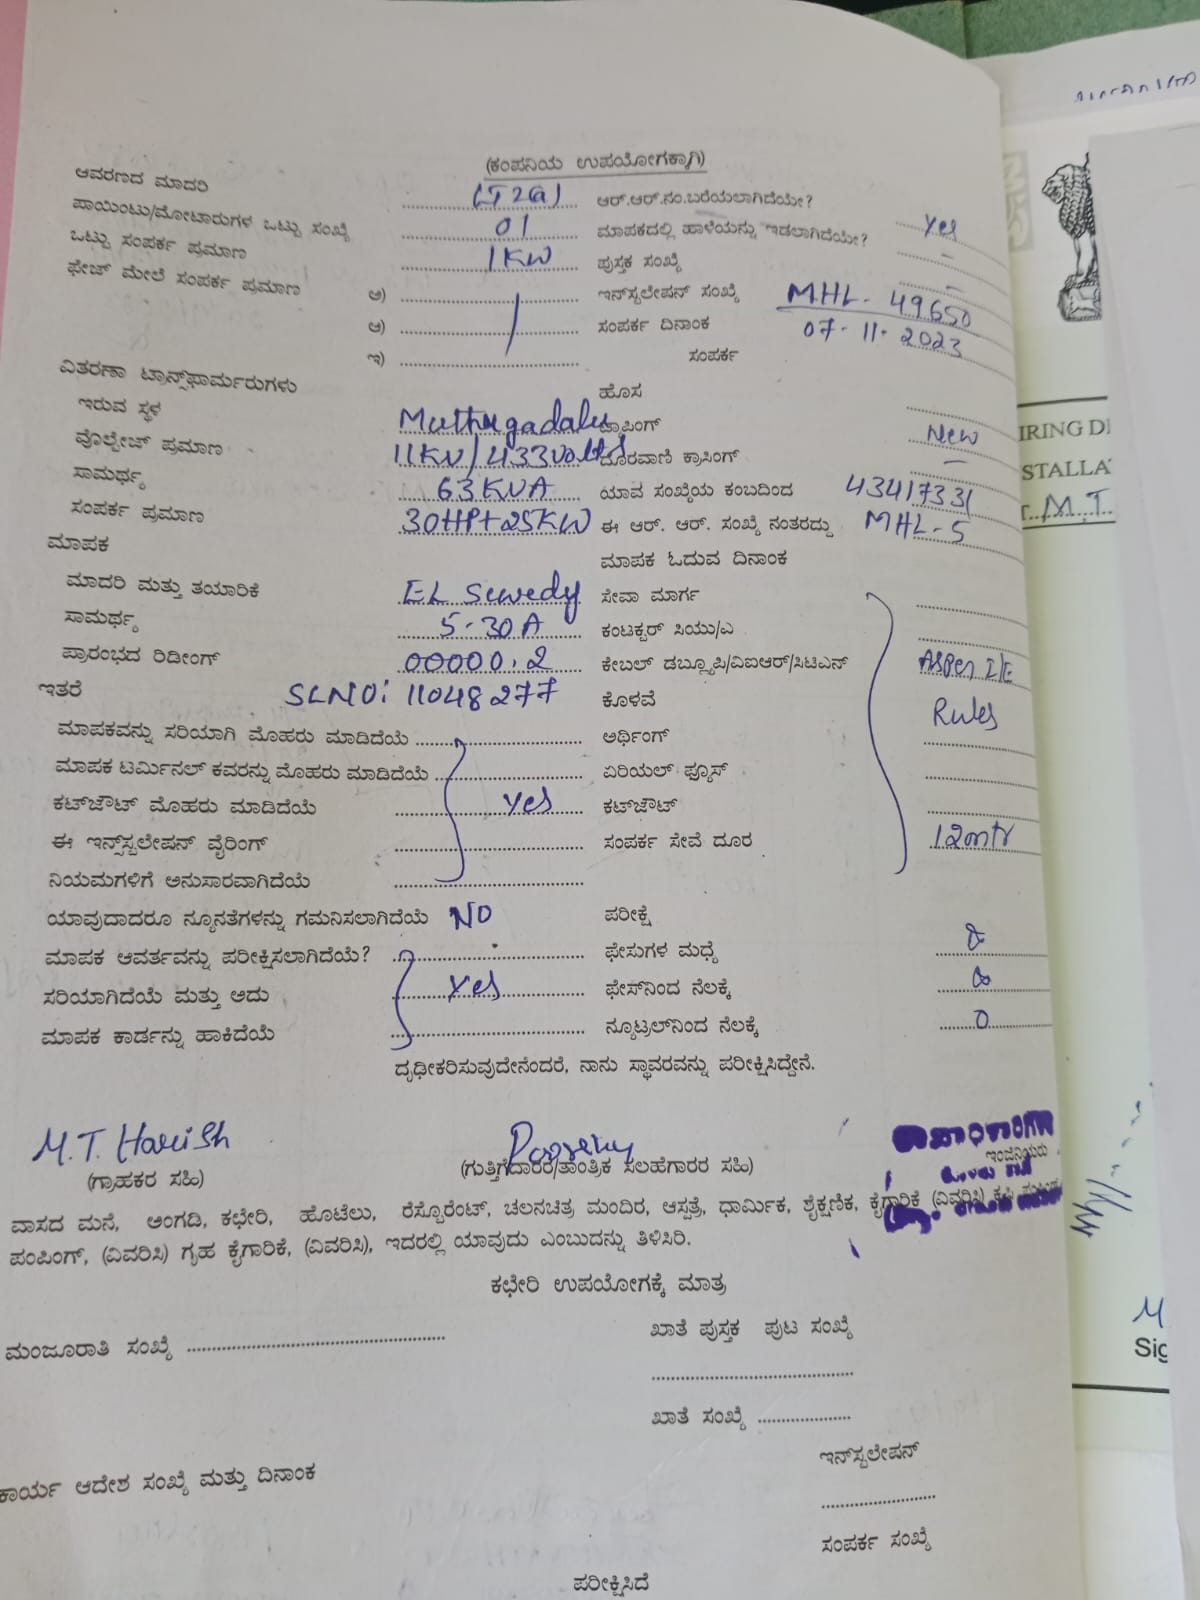 (ಕಂಪನಿಯ ಉಪಯೋಗಕ್ಕಾಗಿ)
ಆವರಣದ ಮಾದರಿ (LT2a) ಆರ್.ಆರ್.ನಂ.ಬರೆಯಲಾಗಿದೆಯೇ?
ಪಾಯಿಂಟು/ಮೋಟಾರುಗಳ ಒಟ್ಟು ಸಂಖ್ಯೆ 01 ಮಾಪಕದಲ್ಲಿ ಹಾಳೆಯನ್ನು ಇಡಲಾಗಿದೆಯೇ? Yes
ಒಟ್ಟು ಸಂಪರ್ಕ ಪ್ರಮಾಣ 1KW ಪುಸ್ತಕ ಸಂಖ್ಯೆ –
ಫೇಜ್ ಮೇಲೆ ಸಂಪರ್ಕ ಪ್ರಮಾಣ ಅ) ಇನ್‌ಸ್ಟಲೇಷನ್ ಸಂಖ್ಯೆ MHL- 49650
ಆ) ಸಂಪರ್ಕ ದಿನಾಂಕ 07-11-2023
ಇ) ಸಂಪರ್ಕ
ವಿತರಣಾ ಟ್ರಾನ್ಸ್‌ಫಾರ್ಮರುಗಳು ಹೊಸ
ಇರುವ ಸ್ಥಳ Muthugadalu ಟ್ಯಾಪಿಂಗ್ New
ವೊಲ್ಟೇಜ್ ಪ್ರಮಾಣ 11KV/433volts ದೂರವಾಣಿ ಕ್ರಾಸಿಂಗ್ –
ಸಾಮರ್ಥ್ಯ 63KVA ಯಾವ ಸಂಖ್ಯೆಯ ಕಂಬದಿಂದ 43417331
ಸಂಪರ್ಕ ಪ್ರಮಾಣ 30HP+25KW ಈ ಆರ್. ಆರ್. ಸಂಖ್ಯೆ ನಂತರದ್ದು MHL-5
ಮಾಪಕ ಮಾಪಕ ಓದುವ ದಿನಾಂಕ
ಮಾದರಿ ಮತ್ತು ತಯಾರಿಕೆ EL Sewedy ಸೇವಾ ಮಾರ್ಗ
ಸಾಮರ್ಥ್ಯ 5-30A ಕಂಟಕ್ಟರ್ ಸಿಯು/ಎ
ಪ್ರಾರಂಭದ ರಿಡೀಂಗ್ 00000.2 ಕೇಬಲ್ ಡಬ್ಲ್ಯೂಪಿ/ವಿಐಆರ್/ಸಿಟಿಎಸ್ ASPer I/E
ಇತರೆ SLNO: 11048277 ಕೊಳವೆ Rules
ಮಾಪಕವನ್ನು ಸರಿಯಾಗಿ ಮೊಹರು ಮಾಡಿದೆಯೆ ಅರ್ಥಿಂಗ್
ಮಾಪಕ ಟರ್ಮಿನಲ್ ಕವರನ್ನು ಮೊಹರು ಮಾಡಿದೆಯೆ ಏರಿಯಲ್ ಫ್ಯೂಸ್
ಕಟ್‌ಜೌಟ್ ಮೊಹರು ಮಾಡಿದೆಯೆ Yes ಕಟ್‌ಜೌಟ್
ಈ ಇನ್ಸ್‌ಸ್ಟಲೇಷನ್ ವೈರಿಂಗ್ ಸಂಪರ್ಕ ಸೇವೆ ದೂರ 12mtr
ನಿಯಮಗಳಿಗೆ ಅನುಸಾರವಾಗಿದೆಯೆ
ಯಾವುದಾದರೂ ನ್ಯೂನತೆಗಳನ್ನು ಗಮನಿಸಲಾಗಿದೆಯೆ NO ಪರೀಕ್ಷೆ
ಮಾಪಕ ಆವರ್ತವನ್ನು ಪರೀಕ್ಷಿಸಲಾಗಿದೆಯೆ? ಫೇಸುಗಳ ಮಧ್ಯೆ
ಸರಿಯಾಗಿದೆಯೆ ಮತ್ತು ಅದು Yes ಫೇಸ್‌ನಿಂದ ನೆಲಕ್ಕೆ
ಮಾಪಕ ಕಾರ್ಡನ್ನು ಹಾಕಿದೆಯೆ ನ್ಯೂಟ್ರಲ್‌ನಿಂದ ನೆಲಕ್ಕೆ 0
ದೃಢೀಕರಿಸುವುದೇನೆಂದರೆ, ನಾನು ಸ್ಥಾವರವನ್ನು ಪರೀಕ್ಷಿಸಿದ್ದೇನೆ.
M.T. Harish
(ಗ್ರಾಹಕರ ಸಹಿ) (ಗುತ್ತಿಗೆದಾರರ/ತಾಂತ್ರಿಕ ಸಲಹೆಗಾರರ ಸಹಿ) ಇಂಜಿನಿಯರು
ವಾಸದ ಮನೆ, ಅಂಗಡಿ, ಕಛೇರಿ, ಹೊಟೆಲು, ರೆಸ್ಟೊರೆಂಟ್, ಚಲನಚಿತ್ರ ಮಂದಿರ, ಆಸ್ಪತ್ರೆ, ಧಾರ್ಮಿಕ, ಶೈಕ್ಷಣಿಕ, ಕೈಗಾರಿಕೆ (ವಿವರಿಸಿ) ಕೃಷಿ
ಪಂಪಿಂಗ್, (ವಿವರಿಸಿ) ಗೃಹ ಕೈಗಾರಿಕೆ, (ವಿವರಿಸಿ), ಇದರಲ್ಲಿ ಯಾವುದು ಎಂಬುದನ್ನು ತಿಳಿಸಿರಿ.
ಕಛೇರಿ ಉಪಯೋಗಕ್ಕೆ ಮಾತ್ರ
ಮಂಜೂರಾತಿ ಸಂಖ್ಯೆ ಖಾತೆ ಪುಸ್ತಕ ಪುಟ ಸಂಖ್ಯೆ
ಖಾತೆ ಸಂಖ್ಯೆ
ಕಾರ್ಯ ಆದೇಶ ಸಂಖ್ಯೆ ಮತ್ತು ದಿನಾಂಕ ಇನ್‌ಸ್ಟಲೇಷನ್
ಸಂಪರ್ಕ ಸಂಖ್ಯೆ
ಪರೀಕ್ಷಿಸಿದೆ
IRING DI
STALLA
M.T
M
Sig